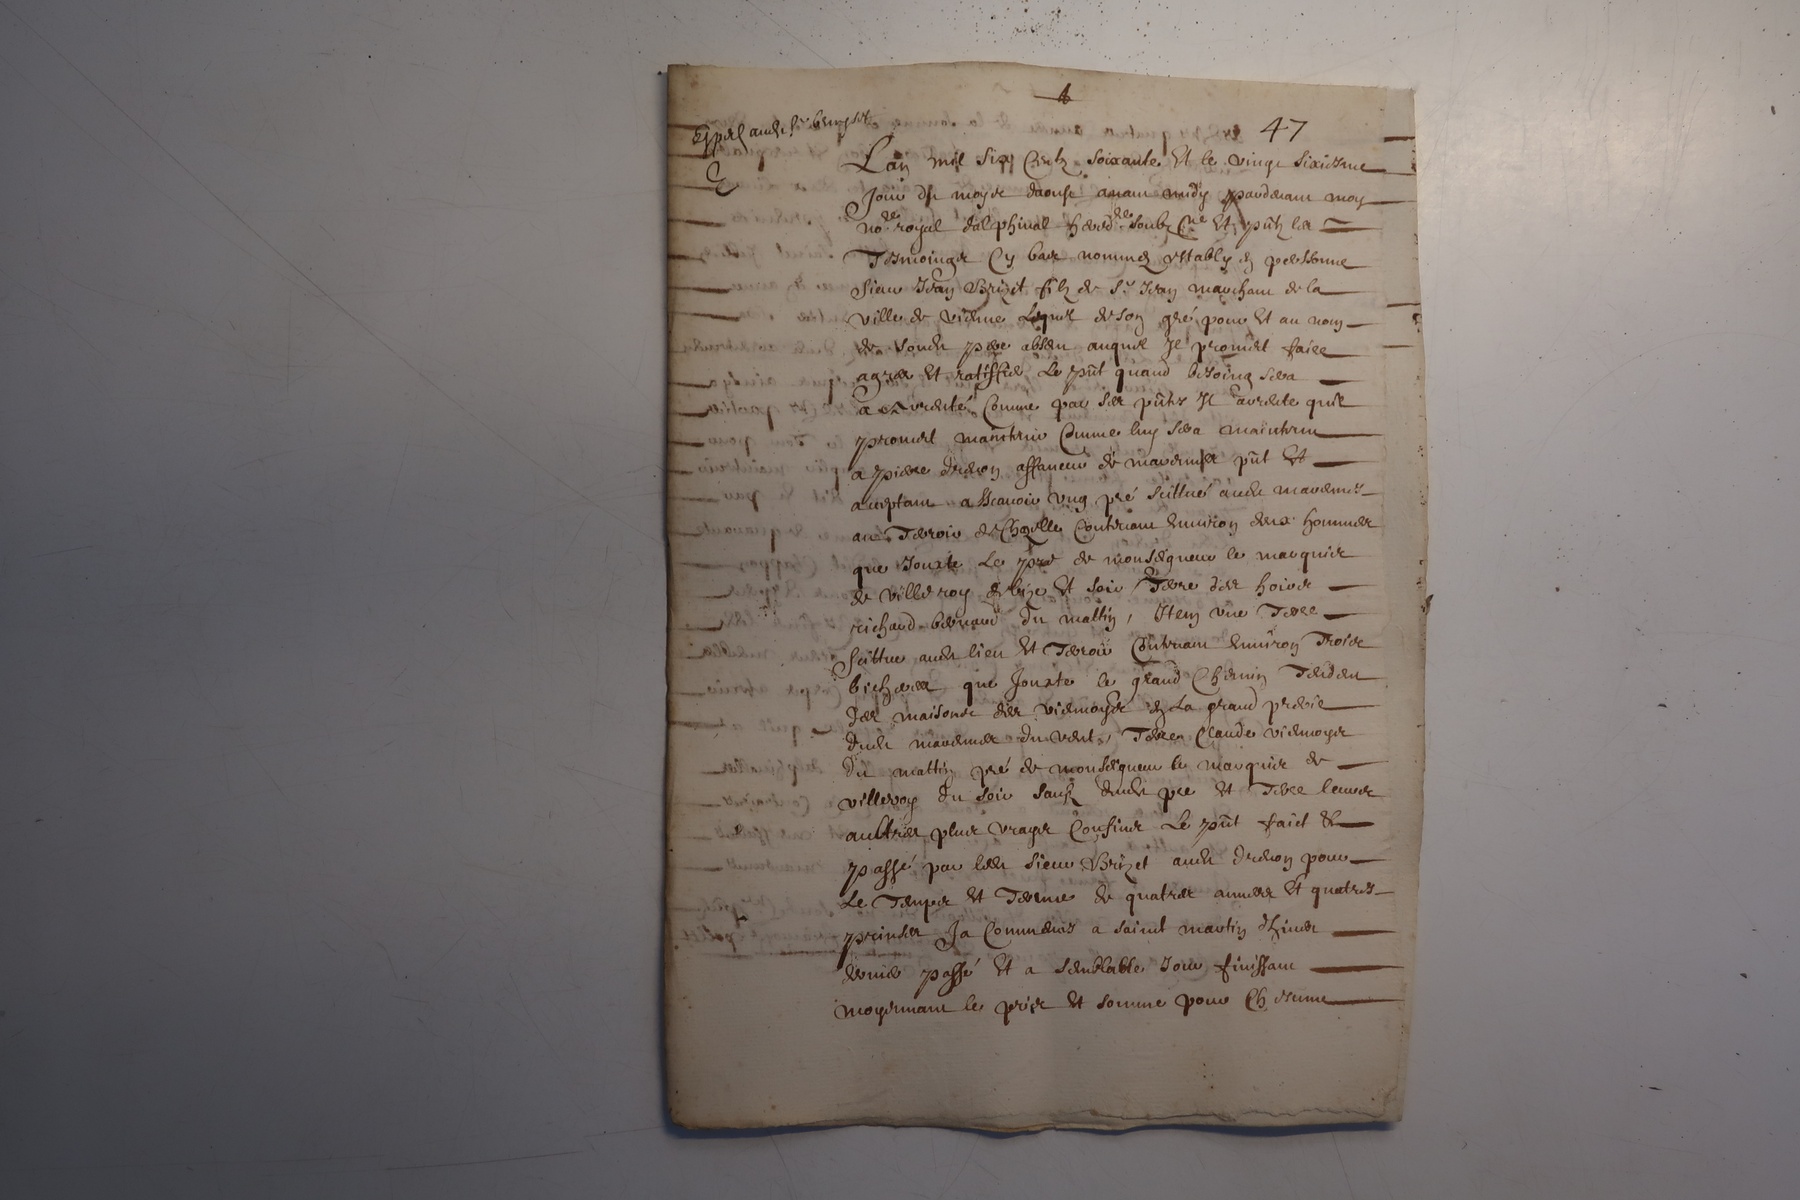 47
Lan mil six centz soixante et le vingt sixiesme
Jour du moys daoust avant midy pardevant moy
no.re royal dalphinal hered.re soubz.ne et pñtz les
Tesmoings cy bas nommez estably en personne
Sieur Jean Brizet filz de S.r Jean marchant de la
ville de vienne Lequel de son gré pour et au nom
de sondt pere absen auquel Il promet faire
agreer et ratiffier Le pñt quand besoing sera
a verité comme par ses pñtes Il arente quil
promet maintenir comme luy sera maintenu
a piere dreon affaneur de marennes pñt et
aceptant a scavoir ung pré scittué audt marennes
au Terroir de Chazelle Contenant environ deux hommes
que Jouxte Le pré de monseigneur le marquis
de villeroy de bize et soir Terre des hoirs
richard bernard du mattin, Item une Terre
scittue audt lieu et Terroir Contenant environ Trois
bicherees que Jouxte le grand Chemin Tendan
des maisons des viennoys en La grand
dudt marennes du vent, Terre Claude viennoys
du mattin pré de monseigneur le marquis de
villeroy du soir saufz dudt pre et Terre leurs
aultres plus vrays Confins Le pñt faict et
passé par ledt sieur Brizet audt dreon pour
Le Temps et Terme de quatres annees et quatres
prinses Ja Commences a saint martin dhiver
dernier passé et a semblable Jour finissant
moyennant le prix et somme pour Chescune